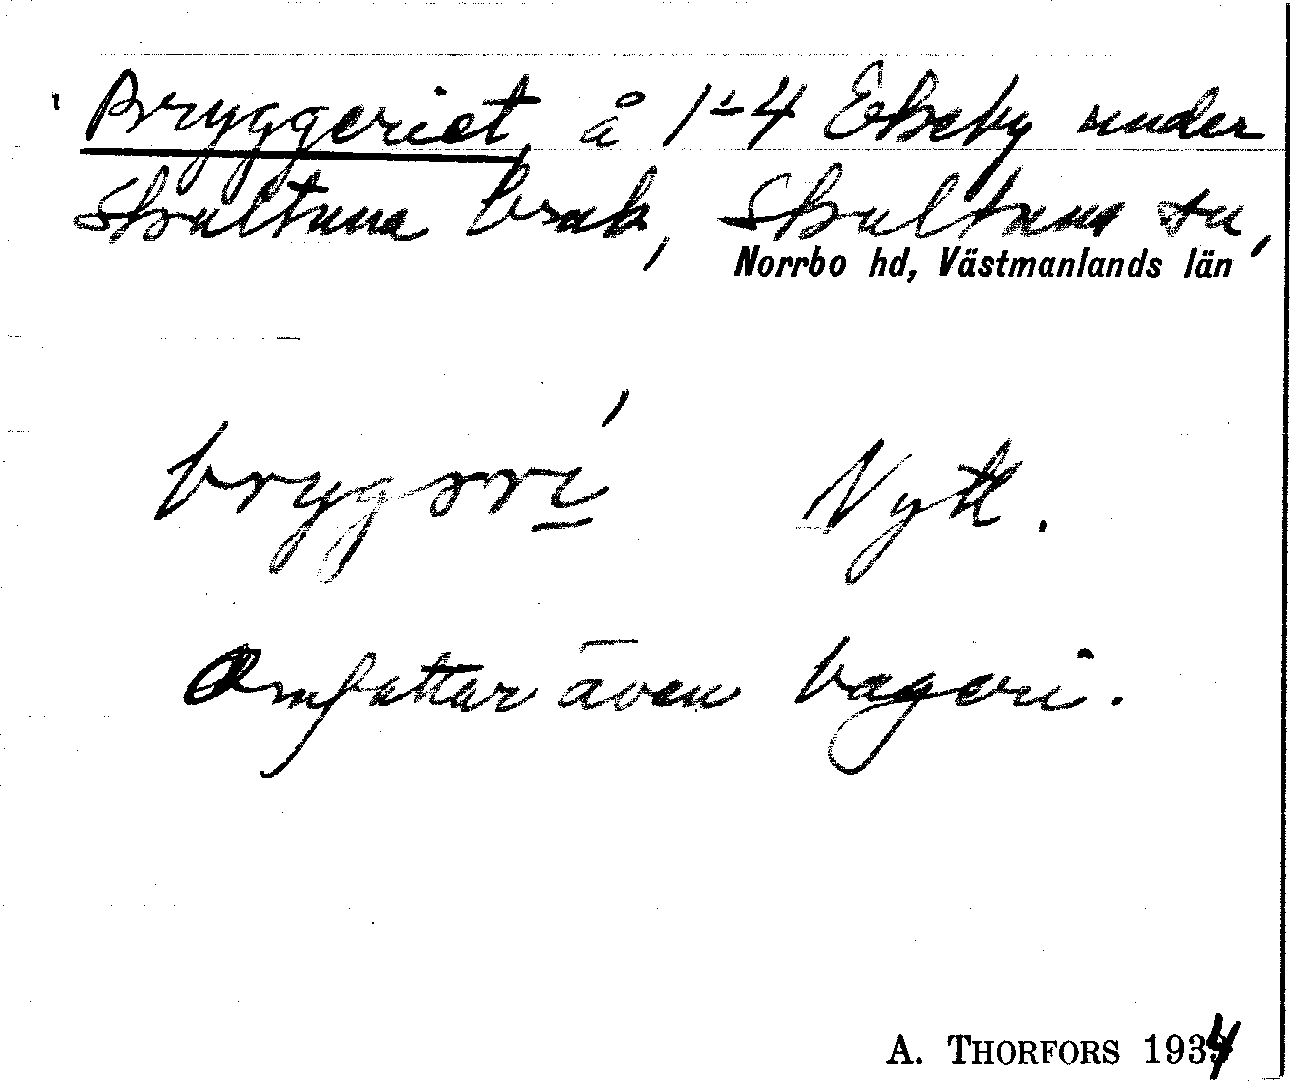 Bryggeriet, å 1-4 Ekeby under
Skultuna bruk, Skultuna sn,
Norrbo hd, Västmanlands län
brygəri´ Nytt.
Omfattar även bageri.
A. THORFORS 1934